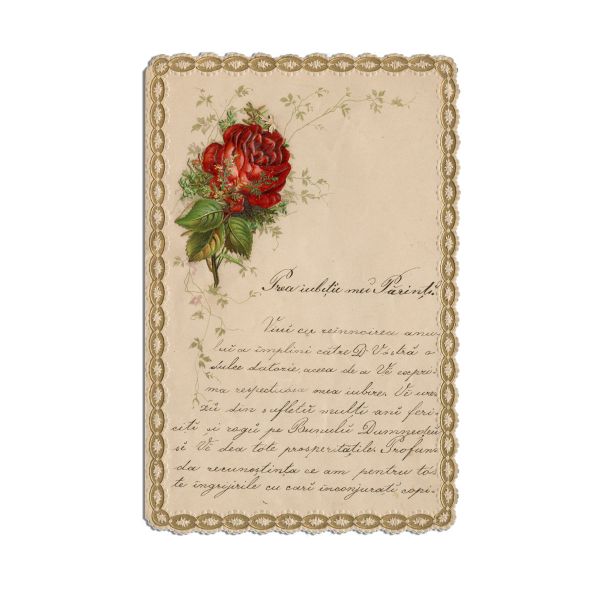 Prea iubiții mei Părinți.
Viui cu reînnoirea anu-
lui a împlini către D. Vostră o
dulce datorie, aceea de a Ve espri-
ma respectuosa mea iubire. Ve ure-
ză din sufletŭ multi ani feri-
citi si rogŭ pe Bunulŭ Dumnedeŭ
sĕ Ve dea tote prosperitatile. Profun-
da recunostinta ce am pentru tos-
te îngrijirile cu cari încongiurati copi-